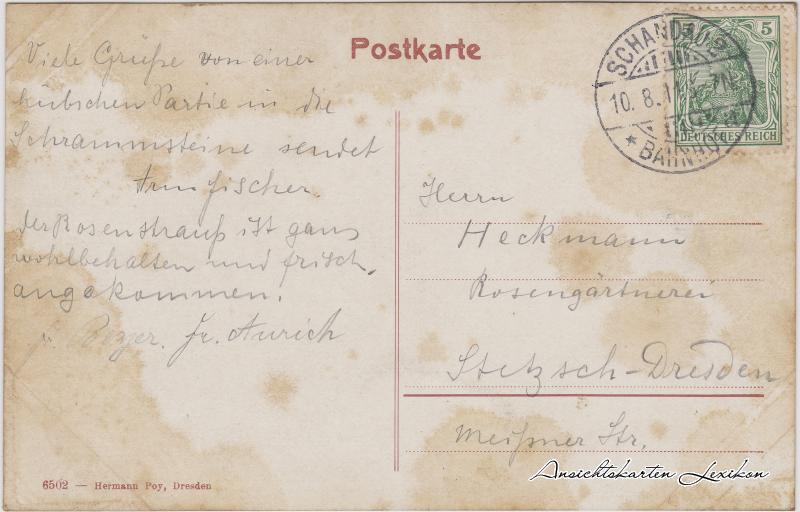 Postkarte
Viele Grüße von einer
hübschen Partie in die
Schrammsteine sendet
Fischer.
der Rosenstrauß ist ganz
wohlbehalten und frisch,
angekommen.
fr. Aurich
Herrn
Heckmann
Rosengärtnerei
Stetzsch-Dresden
Meißner Str.
SCHANDAU
10. 8. 11
* BAHNHOF
5
DEUTSCHES REICH
6502 — Hermann Poy, Dresden
Ansichtskarten Lexikon